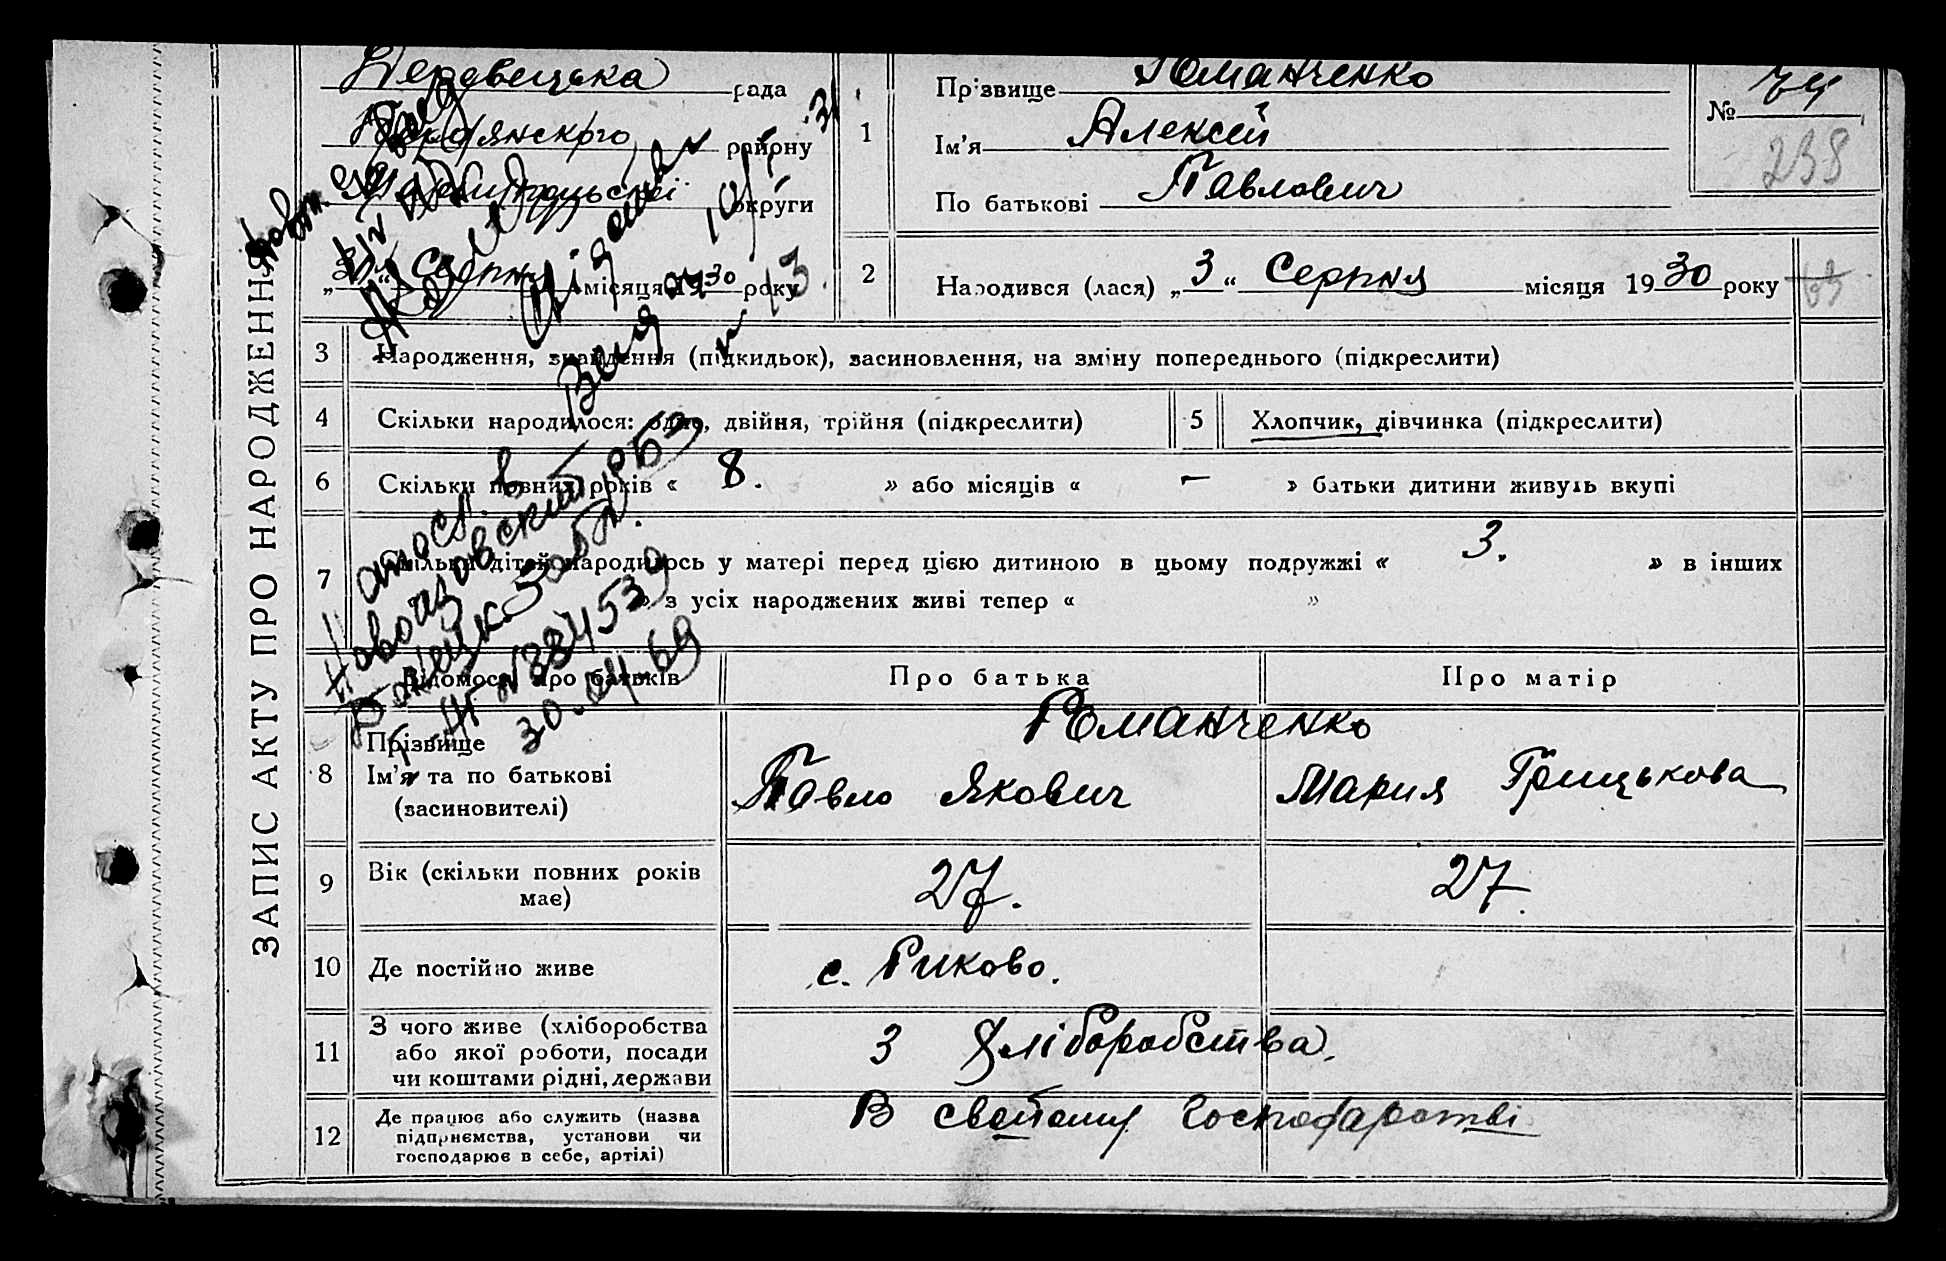 ЗАПИС АКТУ ПРО НАРОДЖЕННЯ
рада
району
округи
„ “ Серпня місяця 1930 року
1
Прізвище Романченко
Ім’я Алексей
По батькові Павлович
№ 74
238
2
Народився (лася) „3“ Серпня місяця 1930 року
3 Народження, знайдення (підкидьок), засиновлення, на зміну попереднього (підкреслити)
4 Скільки народилося: одне, двійня, трійня (підкреслити)
5 Хлопчик, дівчинка (підкреслити)
6 Скільки повних років « 8. » або місяців « — » батьки дитини живуть вкупі
7 Скільки дітей народилось у матері перед цією дитиною в цьому подружжі « 3. » в інших
» з усіх народжених живі тепер « »
Відомості про батьків
Про батька
Про матір
Романченко
8 Прізвище
Ім’я та по батькові
(засиновителі)
Павло Якович
Мария Грицькова
9 Вік (скільки повних років
має)
27.
27.
10 Де постійно живе
с. Риково.
11 З чого живе (хліборобства
або якої роботи, посади
чи коштами рідні, держави
З Хліборобства.
12 Де працює або служить (назва
підприємства, установи чи
господарює в себе, артілі)
В свойому Господарстві
атосл. в
Новоазовский РБЗ
Донецкой обл.
30.04.69